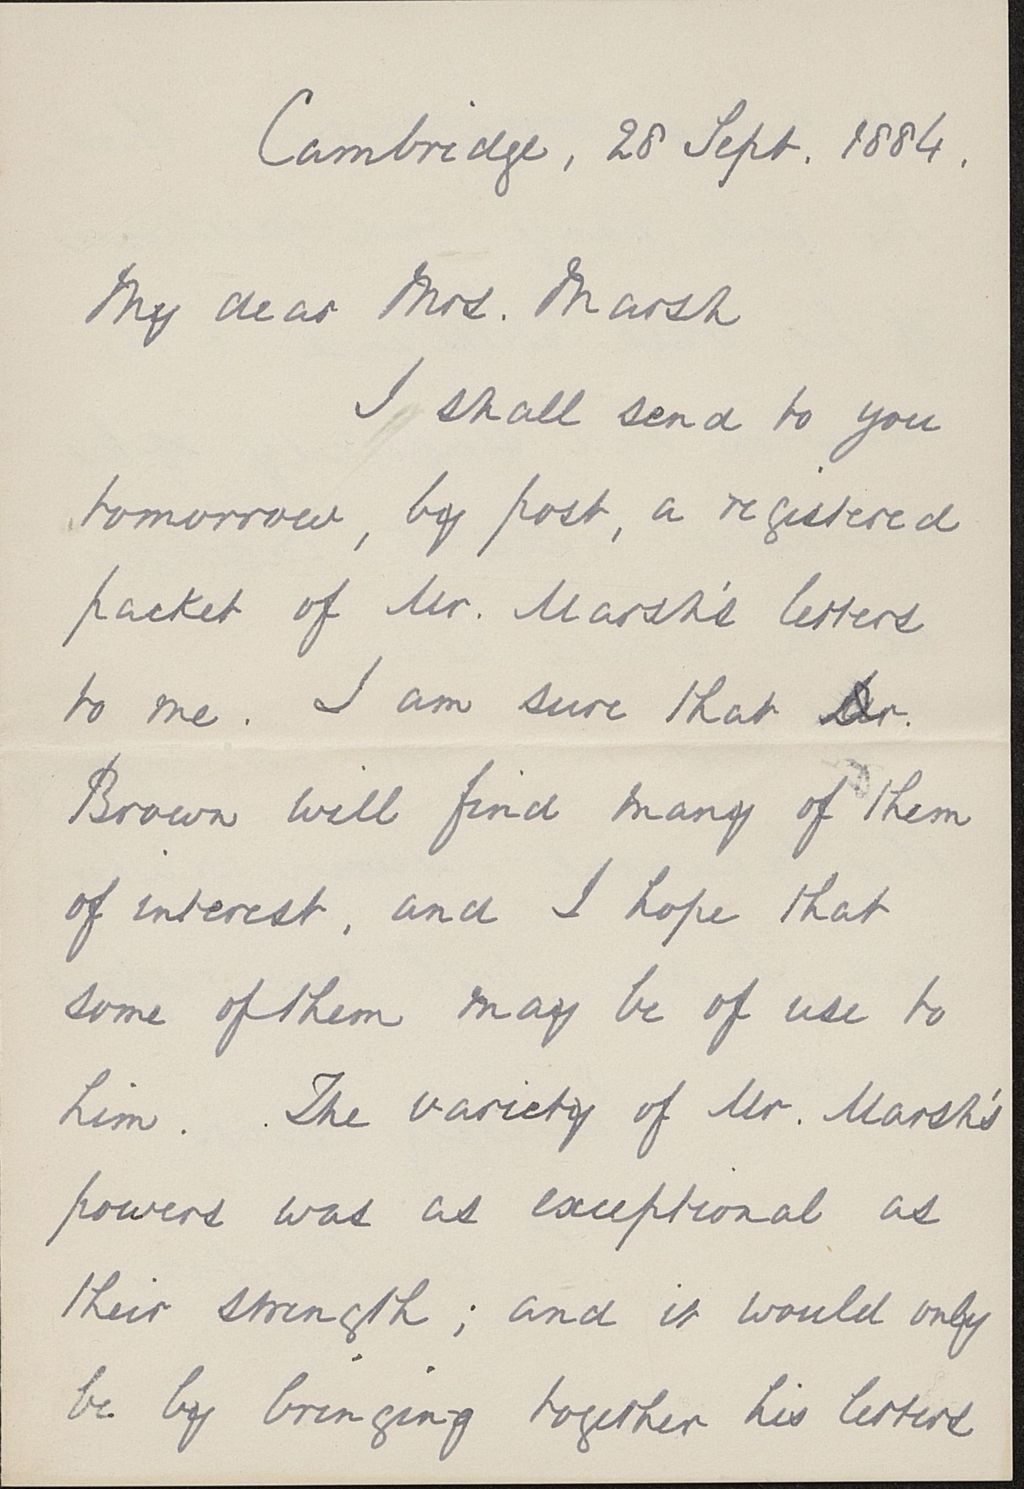 Cambridge, 28 Sept. 1884.
My dear Mrs. Marsh
I shall send to you
tomorrow, by post, a registered
packet of Mr. Marsh's letters
to me. I am sure that Dr.
Brown will find many of them
of interest, and I hope that
some of them may be of use to
him. The variety of Mr. Marsh's
powers was as exceptional as
their strength; and it would only
be by bringing together his letters